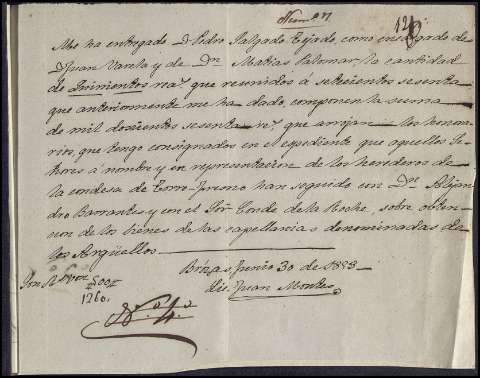 Me ha entregado D. Pedro Salgado Tejado como encargado de
D. Juan Varela y de Dn. Matias Palomar, la cantidad
de Quinientos rs. que reunidos á setecientos sesenta
que anteriormente me ha dado, componen la suma
de mil doscientos sesenta rs. que arrojan los hono
rios que tengo consignados en el expediente que aquellos Se
ñores á nombre y en representacion de los herederos de
la condesa de Torre-Jureno han seguido con Dn. Alejan
dro Barrantes y con el Sor Conde de la Roche, sobre obten
cion de los bienes de las capellanias denominadas de
los Argüellos
Brozas Junio 30 de 1858
Lic. Juan Montes
500
1260.